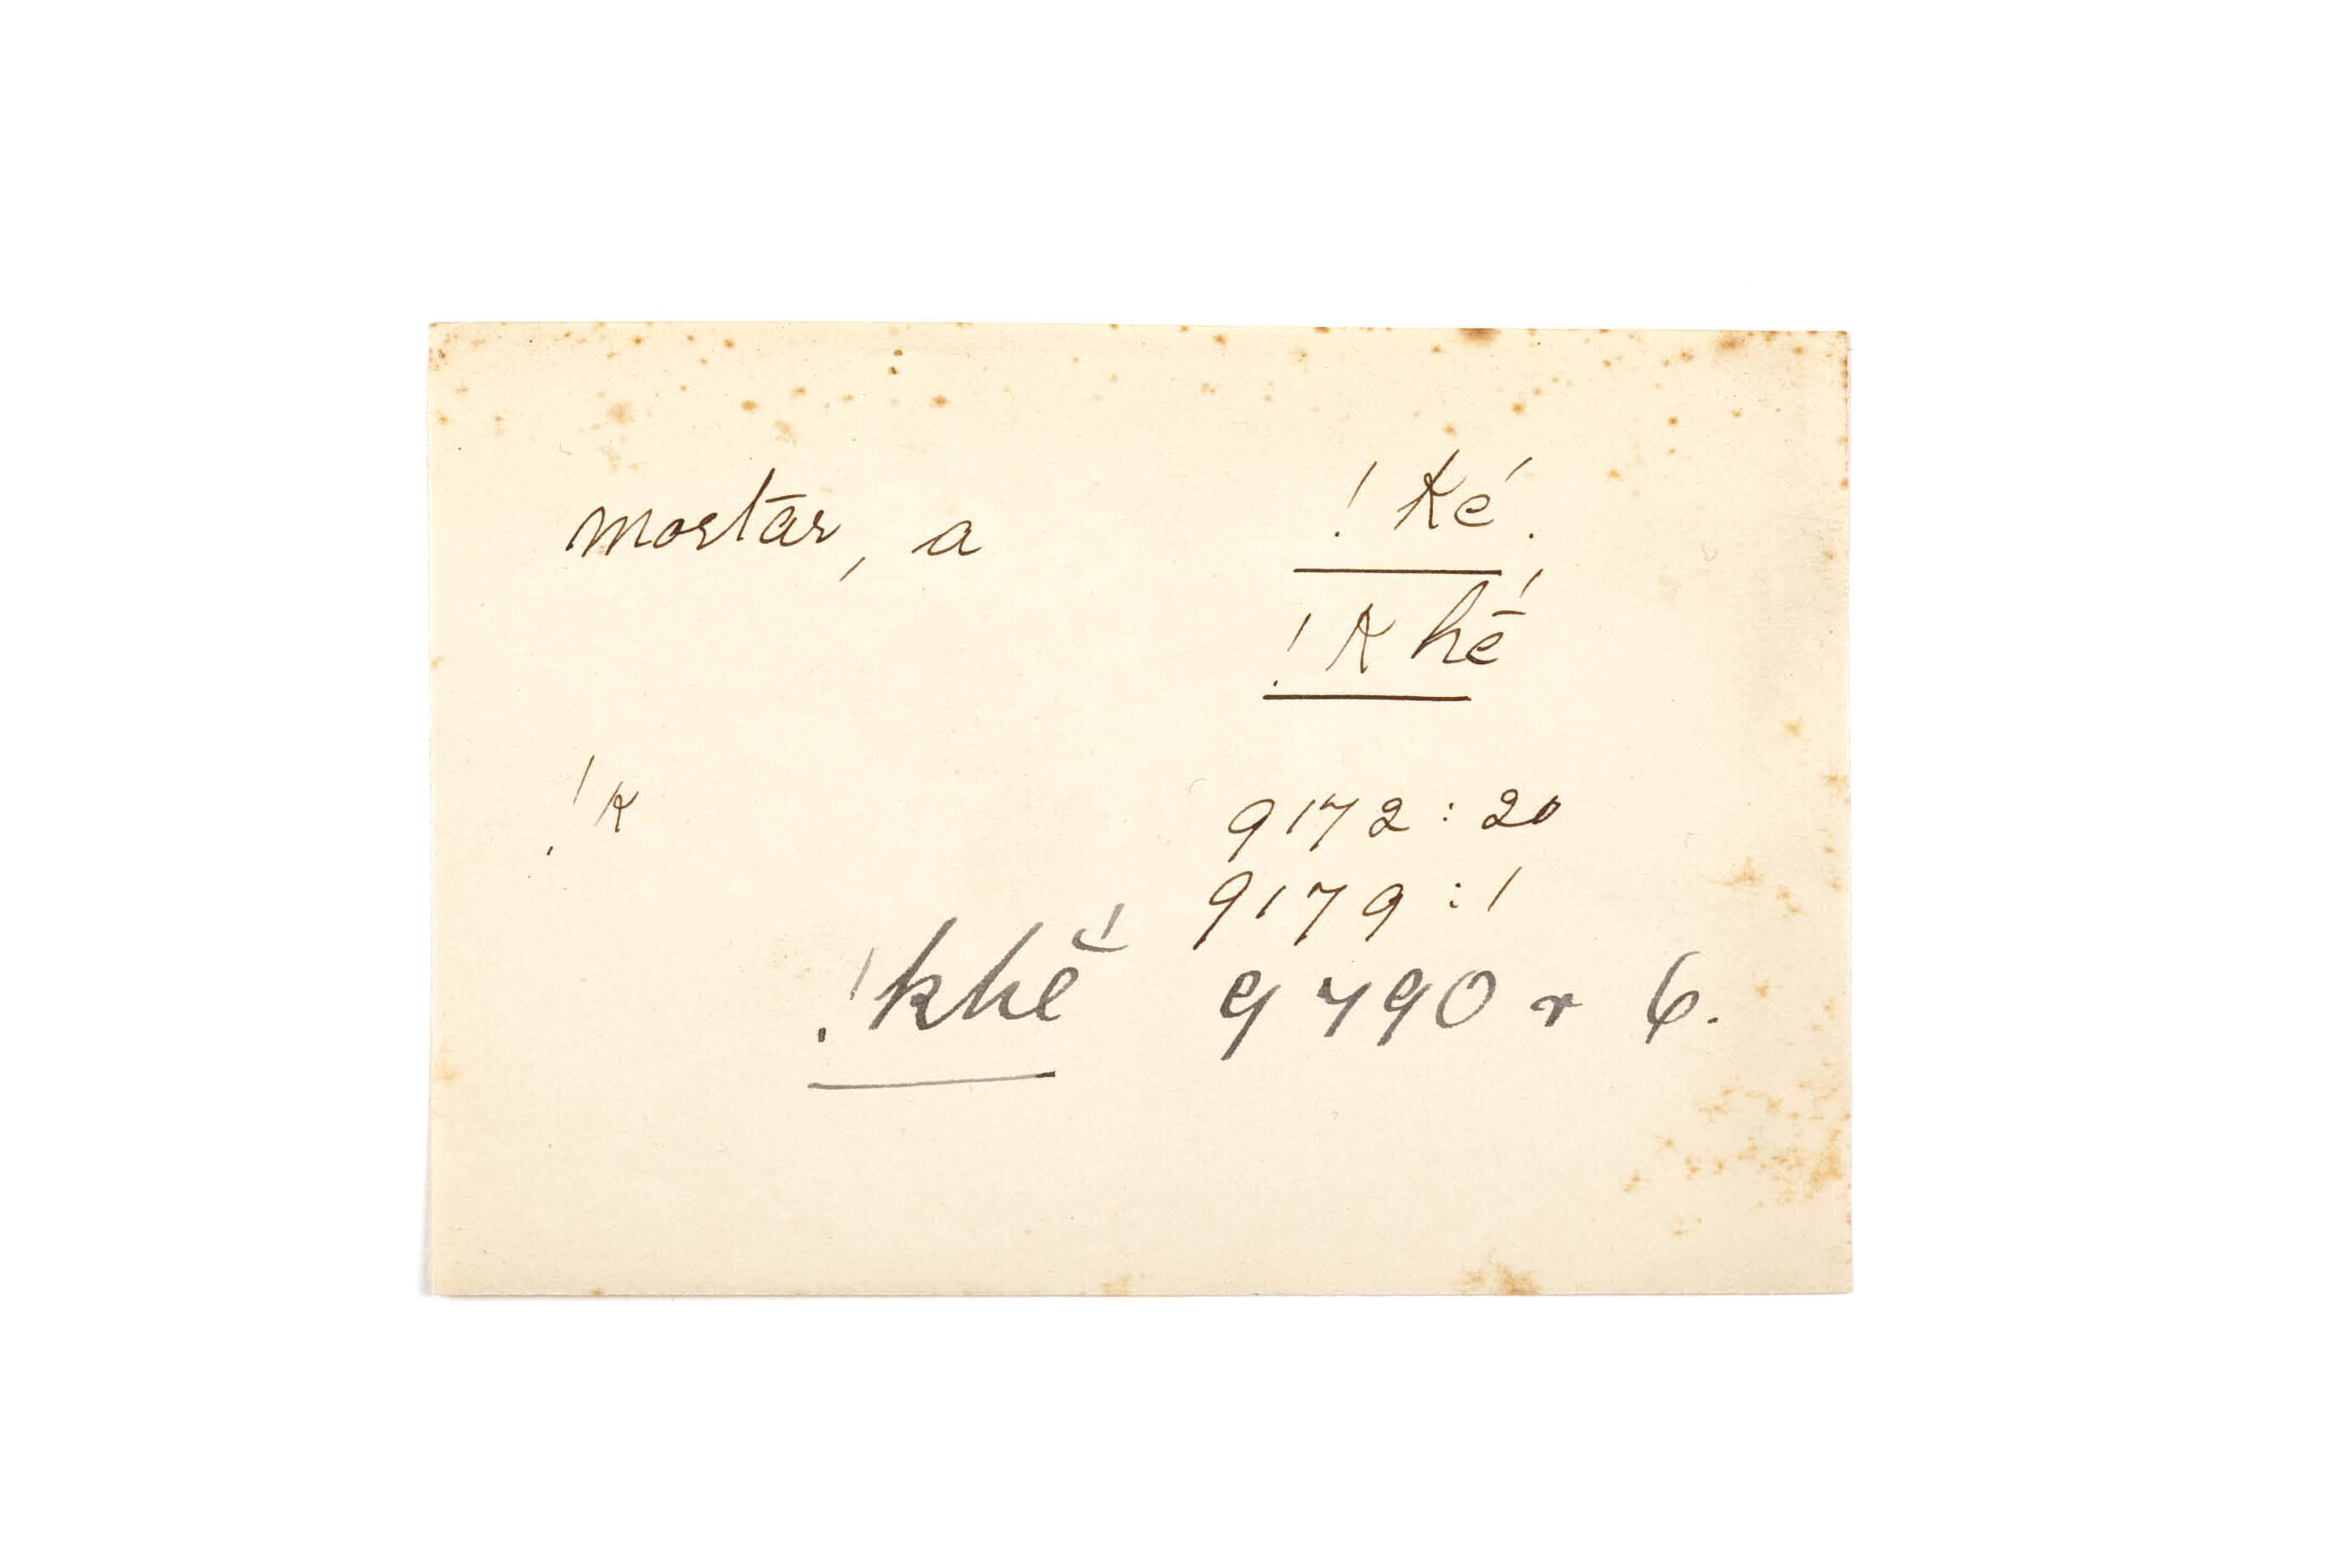 mortar, a !Ké.
!Khḗ
!K 9172 : 20
9179 : 1
!khĕ́ 9790 r 6.